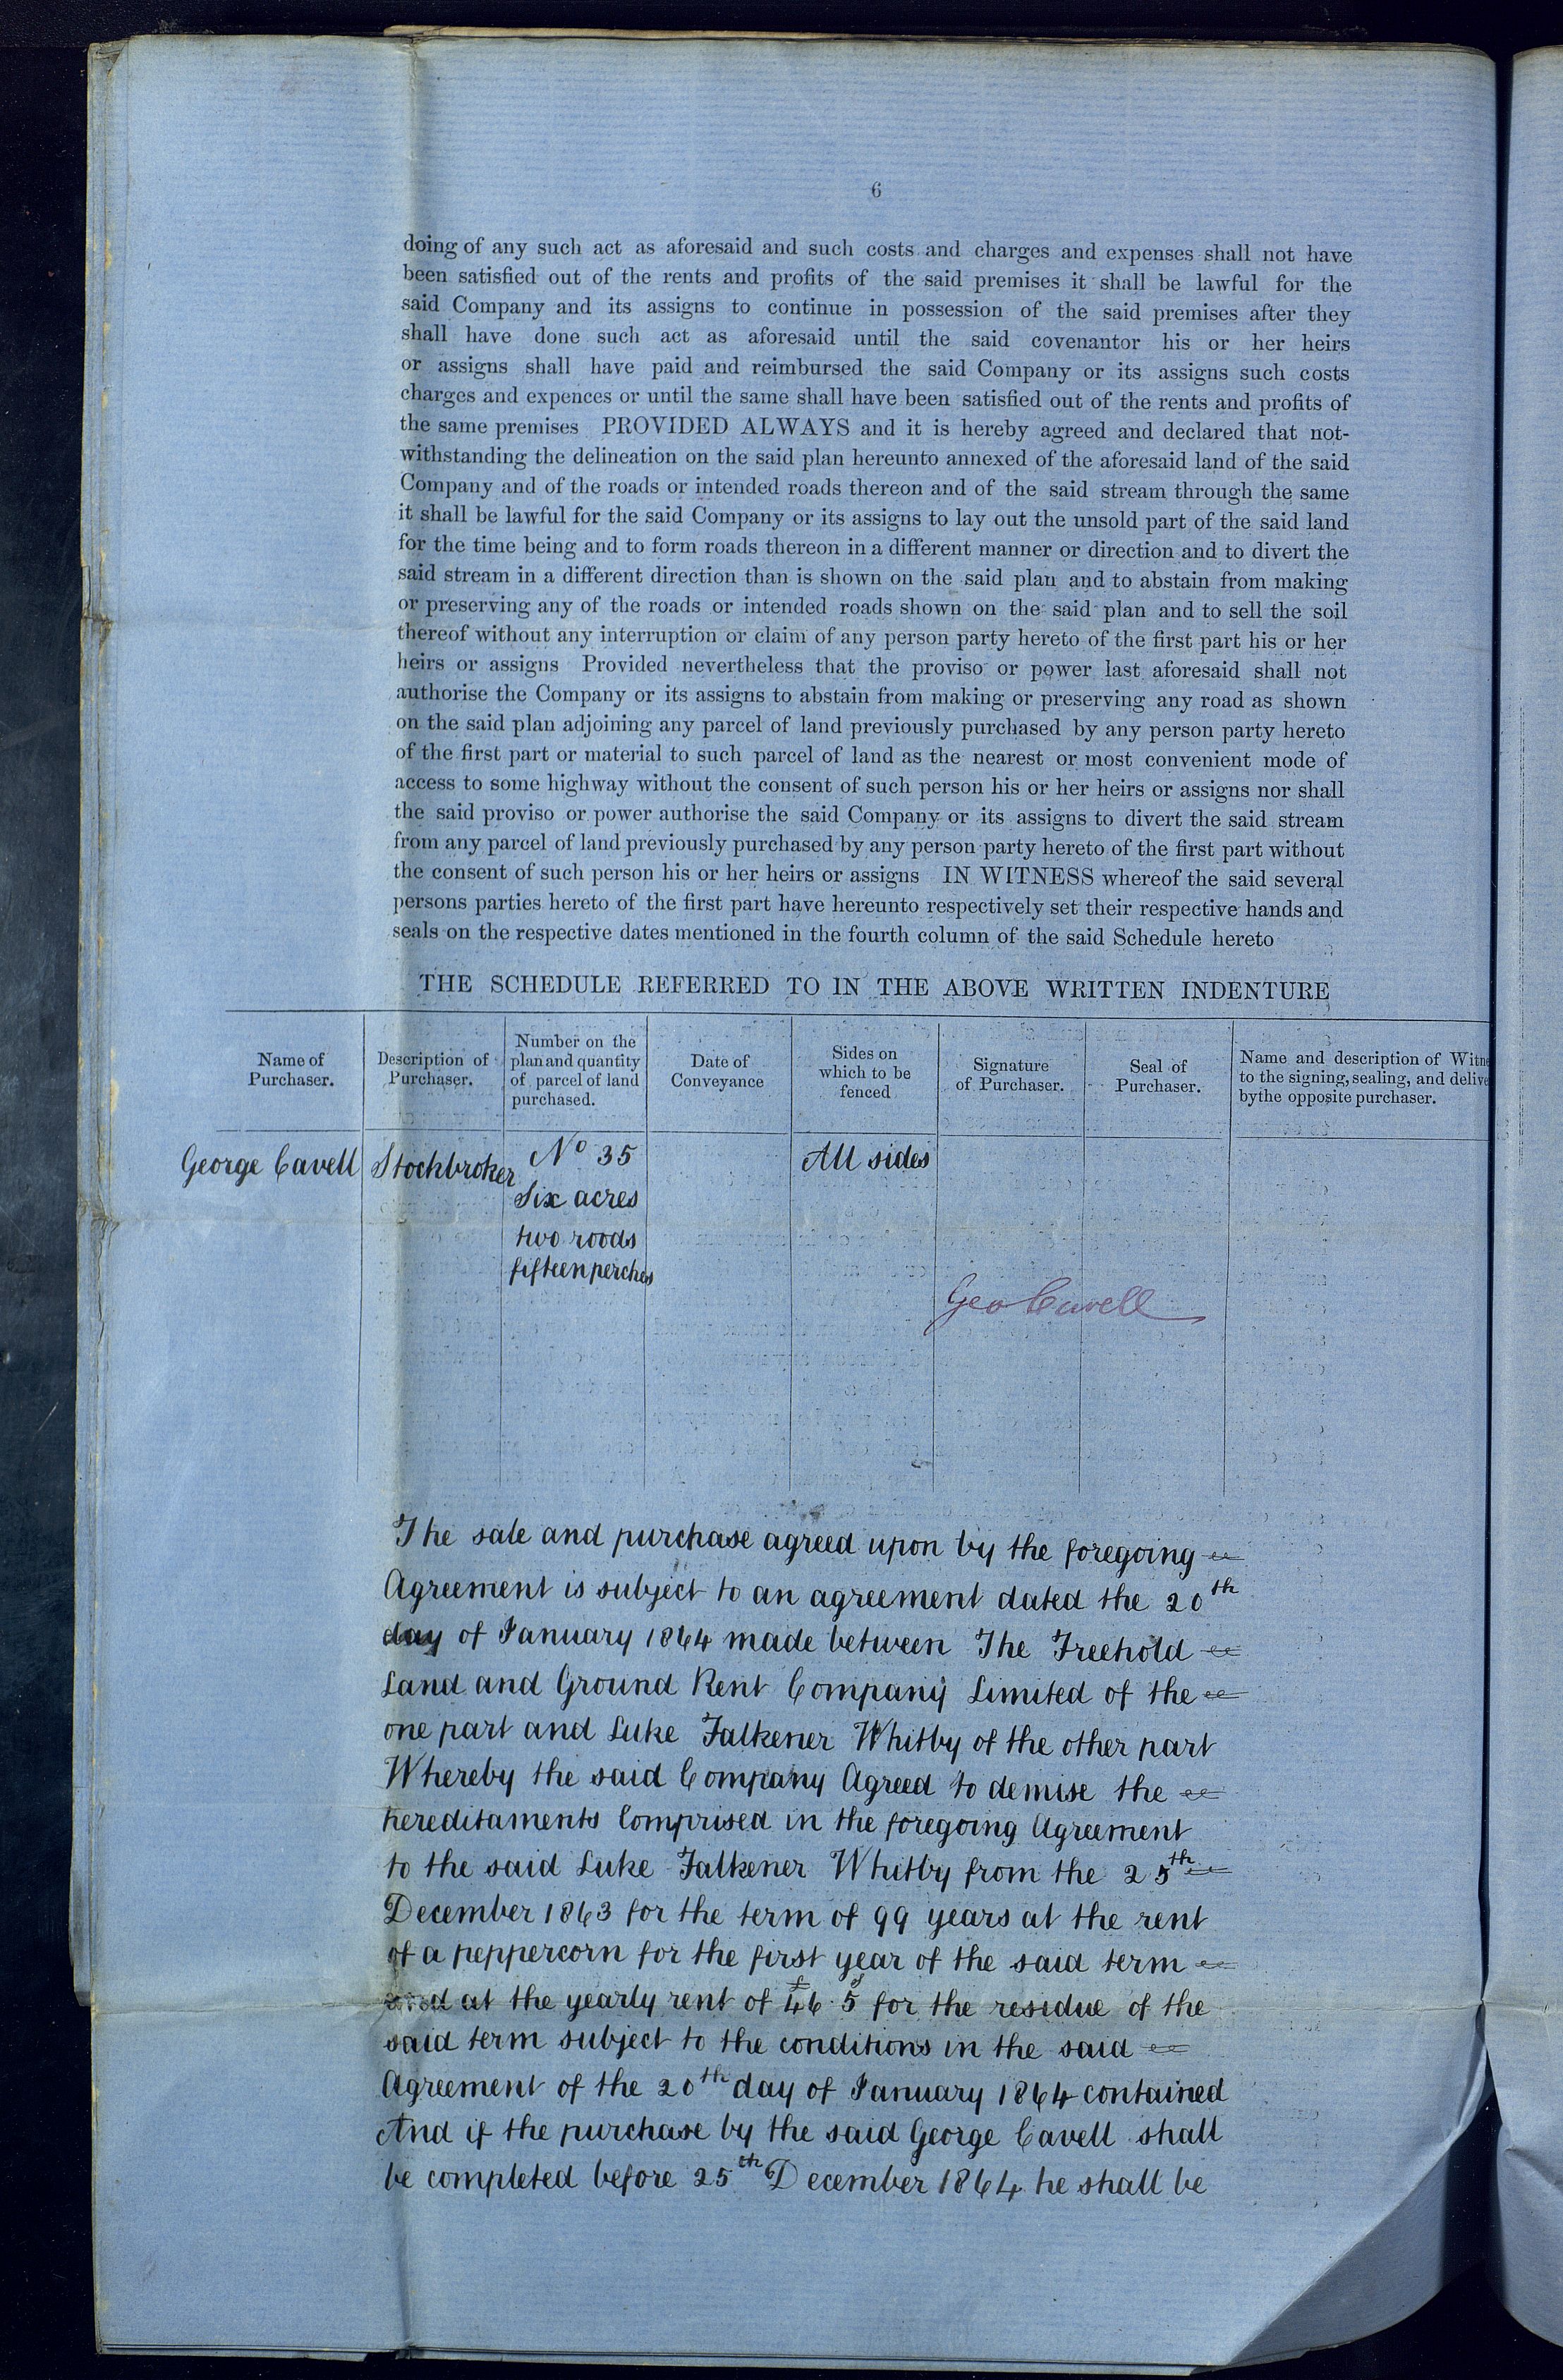 6
doing of any such act as aforesaid and such costs and charges and expenses shall not have
been satisfied out of the rents and profits of the said premises it shall be lawful for the
said Company and its assigns to continue in possession of the said premises after they
shall have done such act as aforesaid until the said covenantor his or her heirs
or assigns shall have paid and reimbursed the said Company or its assigns such costs
charges and expences or until the same shall have been satisfied out of the rents and profits of
the same premises PROVIDED ALWAYS and it is hereby agreed and declared that not-
withstanding the delineation on the said plan hereunto annexed of the aforesaid land of the said
Company and of the roads or intended roads thereon and of the said stream through the same
it shall be lawful for the said Company or its assigns to lay out the unsold part of the said land
for the time being and to form roads thereon in a different manner or direction and to divert the
said stream in a different direction than is shown on the said plan and to abstain from making
or preserving any of the roads or intended roads shown on the said plan and to sell the soil
thereof without any interruption or claim of any person party hereto of the first part his or her
heirs or assigns Provided nevertheless that the proviso or power last aforesaid shall not
authorise the Company or its assigns to abstain from making or preserving any road as shown
on the said plan adjoining any parcel of land previously purchased by any person party hereto
of the first part or material to such parcel of land as the nearest or most convenient mode of
access to some highway without the consent of such person his or her heirs or assigns nor shall
the said proviso or power authorise the said Company or its assigns to divert the said stream
from any parcel of land previously purchased by any person party hereto of the first part without
the consent of such person his or her heirs or assigns IN WITNESS whereof the said several
persons parties hereto of the first part have hereunto respectively set their respective hands and
seals on the respective dates mentioned in the fourth column of the said Schedule hereto
THE SCHEDULE REFERRED TO IN THE ABOVE WRITTEN INDENTURE
Name of
Purchaser.
Description of
Purchaser.
Number on the
plan and quantity
of parcel of land
purchased.
Date of
Conveyance
Sides on
which to be
fenced
Signature
of Purchaser.
Seal of
Purchaser.
Name and description of Witne
to the signing, sealing, and delive
bythe opposite purchaser.
George Cavell
Stockbroker
No 35
Six acres
two roods
fifteen perches
All sides
Geo Cavell
The sale and purchase agreed upon by the foregoing
Agreement is subject to an agreement dated the 20th
day of January 1864 made between The Freehold
Land and Ground Rent Company Limited of the
one part and Luke Falkener Whitby of the other part
Whereby the said Company Agreed to demise the
hereditaments Comprised in the foregoing Agreement
to the said Luke Falkener Whitby from the 25th
December 1863 for the term of 99 years at the rent
of a peppercorn for the first year of the said term
and at the yearly rent of £46 5s for the residue of the
said term subject to the conditions in the said
Agreement of the 20th day of January 1864 contained
And if the purchase by the said George Cavell shall
be completed before 25th December 1864 he shall be